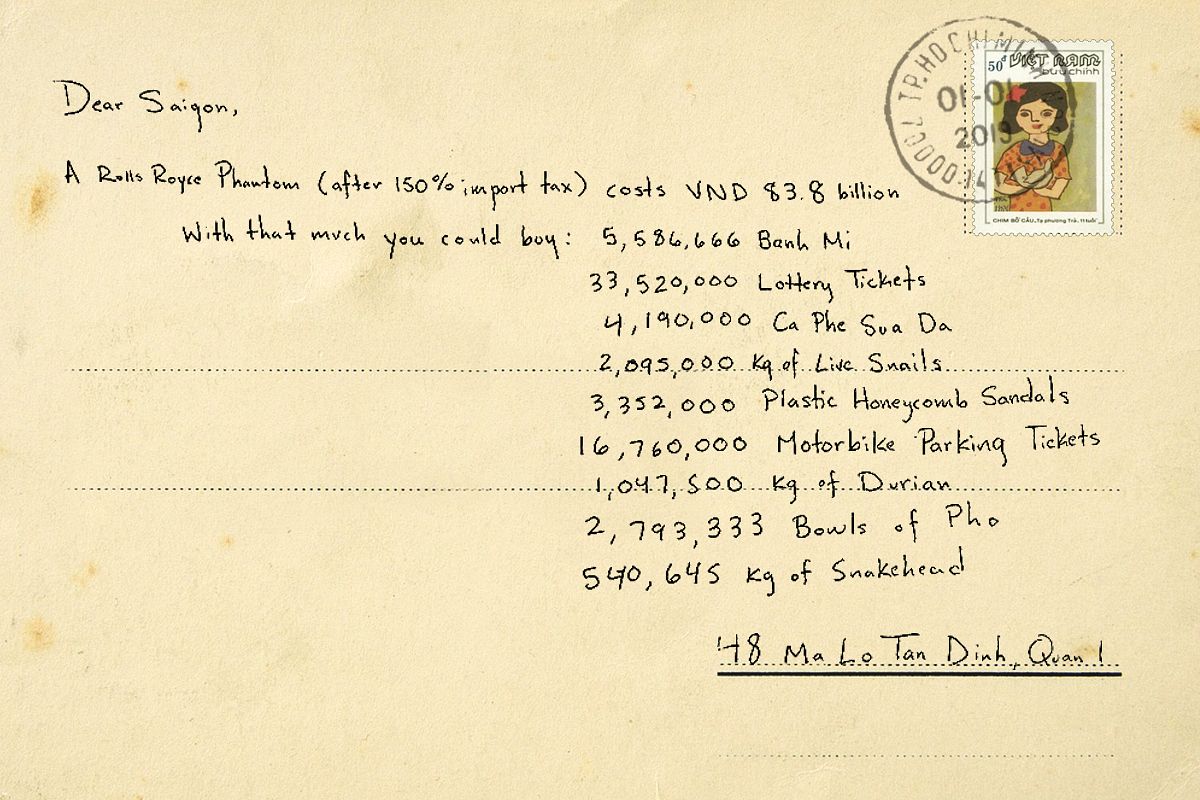 Dear Saigon,
A Rolls Royce Phantom (after 150% import tax) costs VND 83.8 billion
With that much you could buy: 5,586,666 Banh Mi
33,520,000 Lottery Tickets
4,190,000 Ca Phe Sua Da
2,095,000 Kg of Live Snails
3,352,000 Plastic Honeycomb Sandals
16,760,000 Motorbike Parking Tickets
1,047,500 Kg of Durian
2,793,333 Bowls of Pho
540,645 Kg of Snakehead
48 Ma Lo Tan Dinh, Quan 1
TP.HO CHI MINH
01-01
2019
50đ VIỆT NAM
bưu chính
CHIM BỒ CÂU. Tạ phương Trà. 11 tuổi